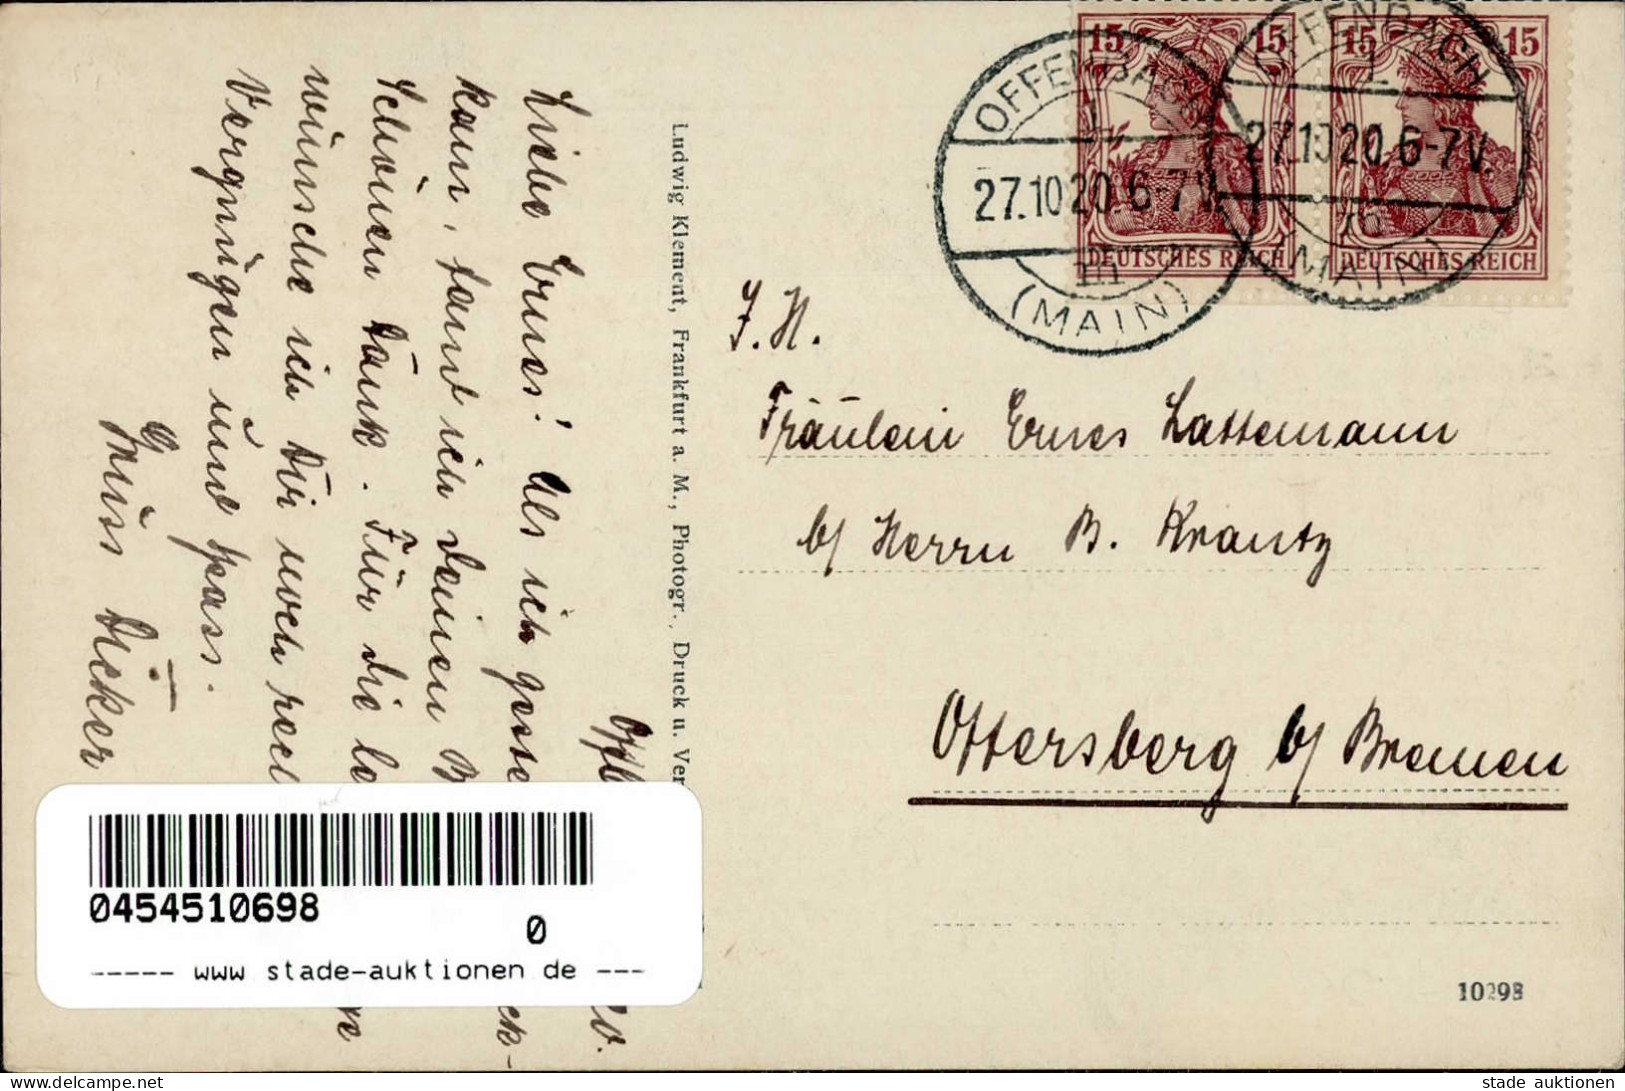 15 15 15 15
DEUTSCHES REICH DEUTSCHES REICH
OFFENBACH
1
27.10 20. 6-7 V.
(MAIN)
OFFENBACH
1
27.10 20. 6-7 V.
m
(MAIN)
'20.
Liebe Ernes! Als ich geste
kam, fand ich deinen B ck-
schönen Dank. Für die le
wünsche ich Dir noch rec n
Vergnügen und spass.
Gruss Dicker
Ludwig Klement, Frankfurt a. M., Photogr., Druck u. Ver
F. H.
Fräulein Ernes Lattemann
b/ Herrn B. Krantz
Ottersberg b/ Bremen
0454510698
0
----- www stade-auktionen de ---
10298
stade auktionen
www.delcampe.net